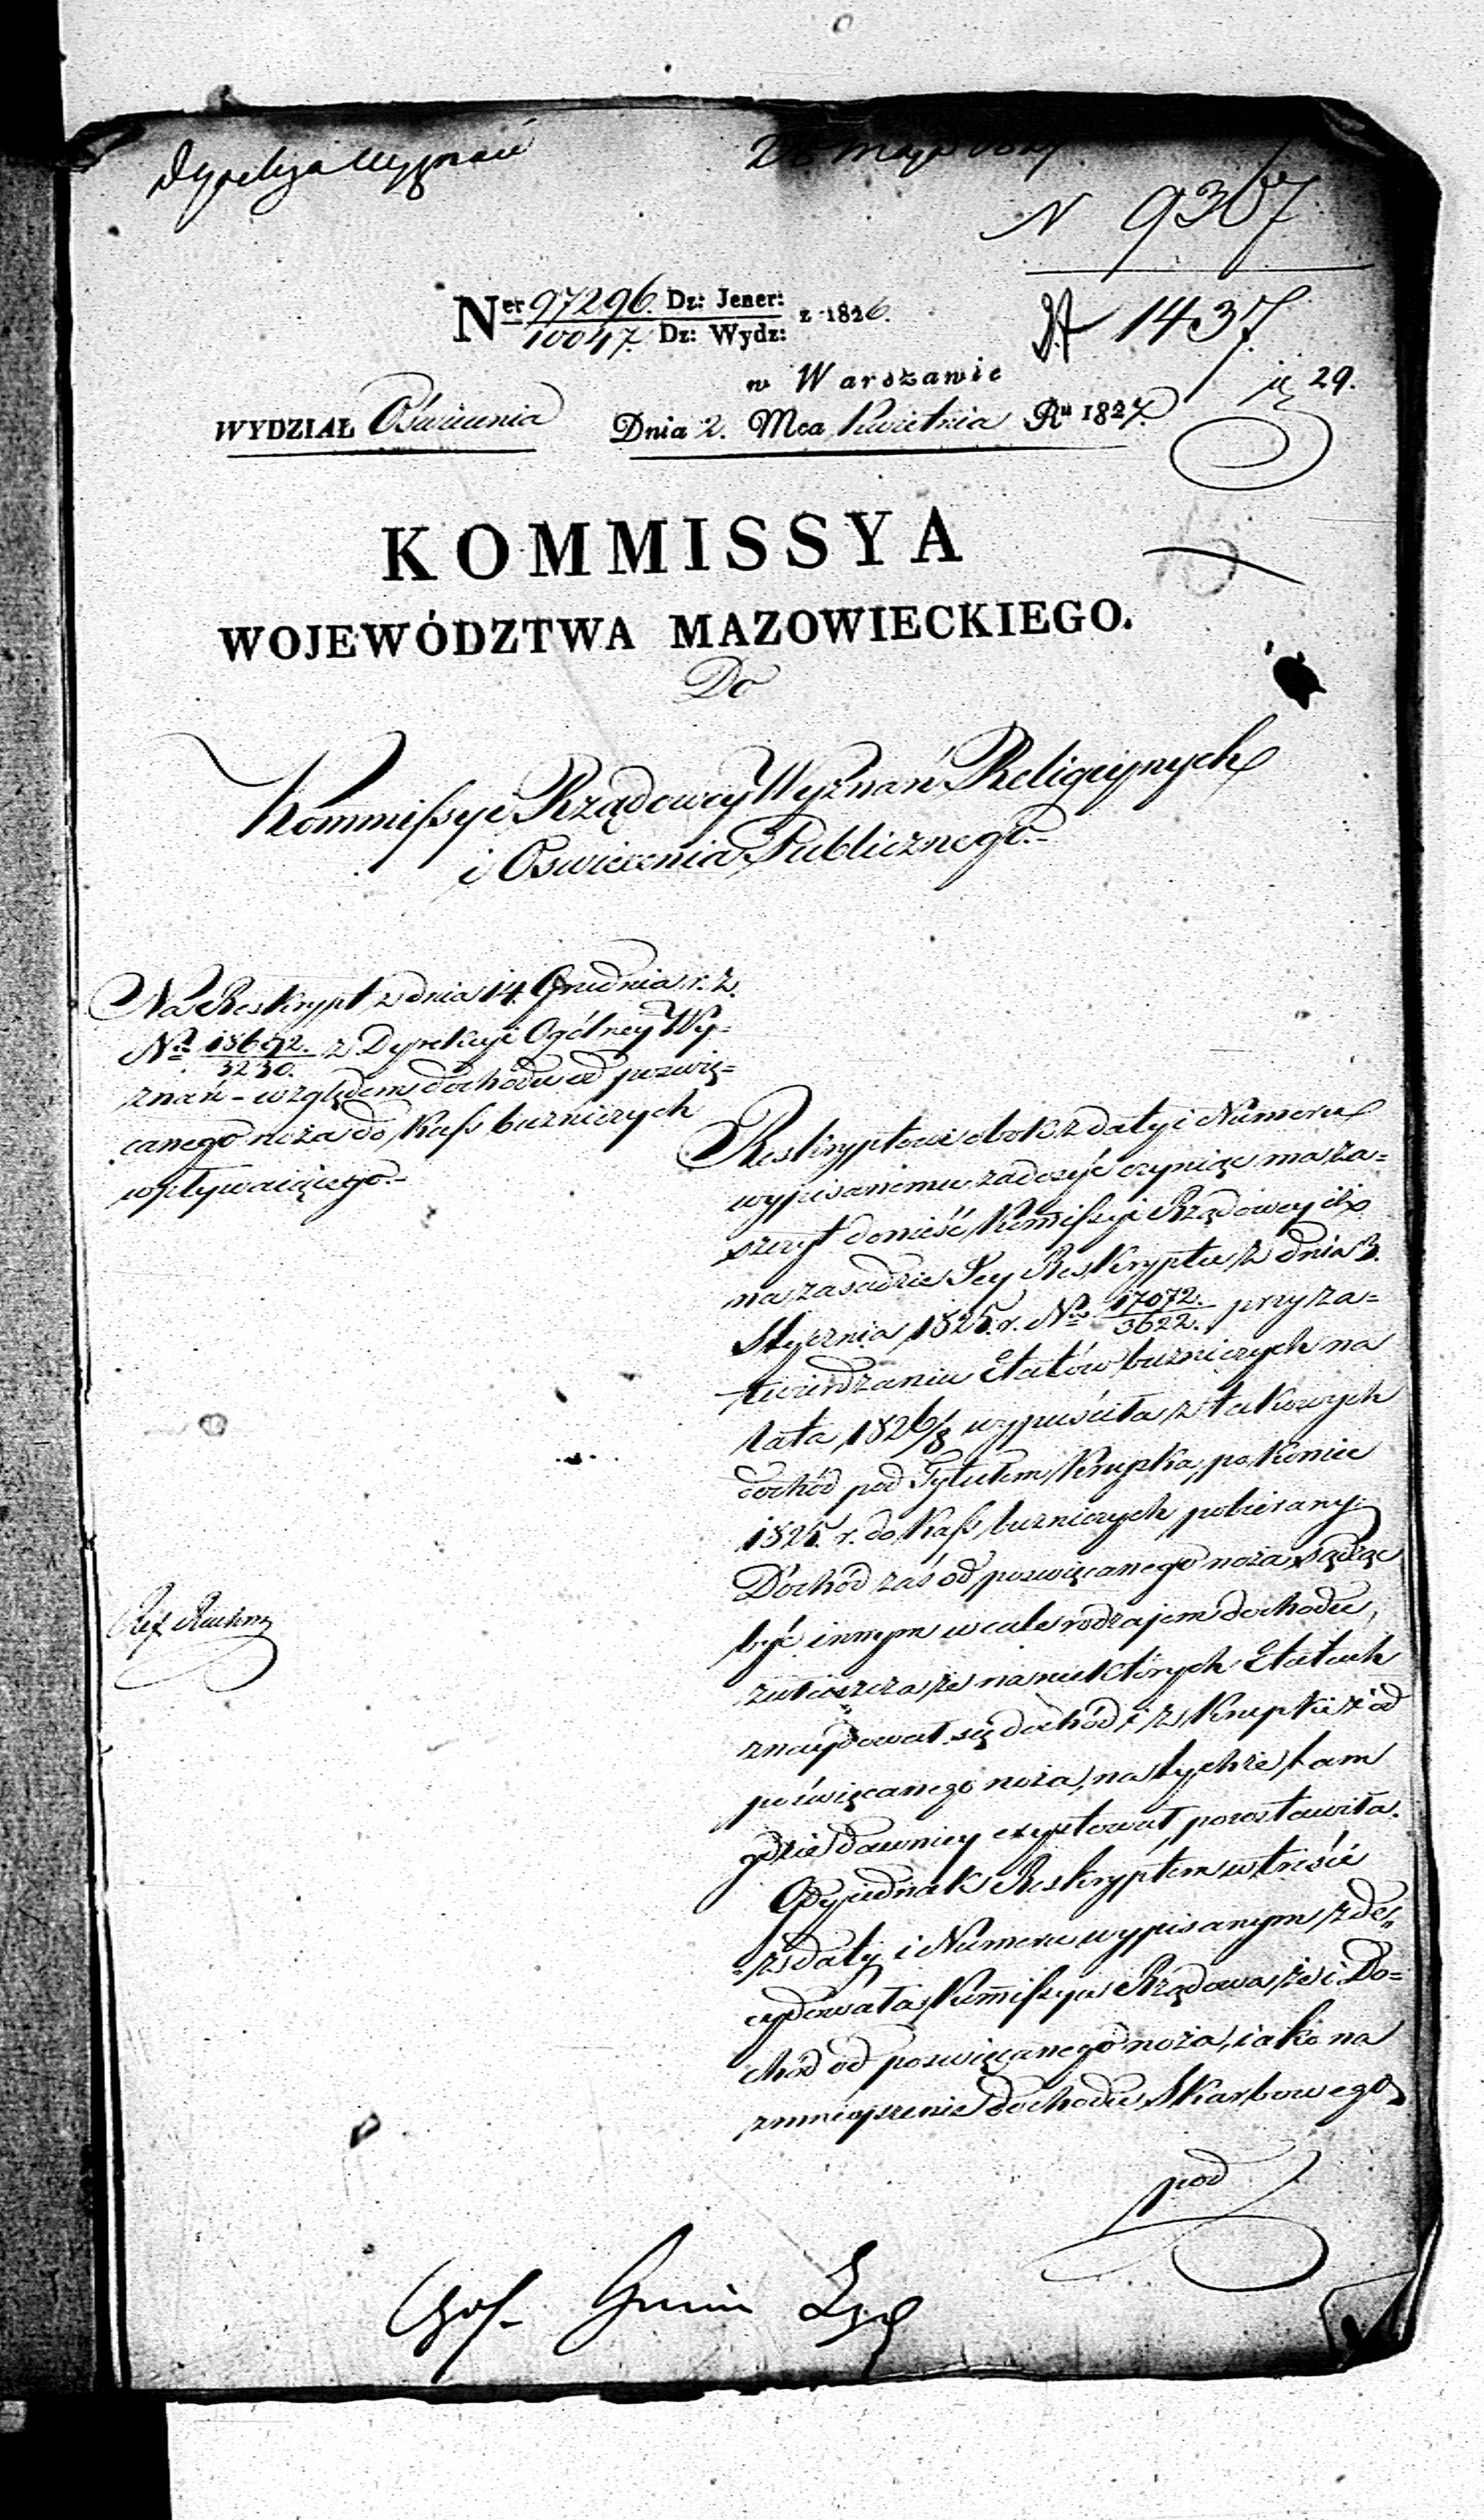 Dyrekcya Wyznań
28 Maja 1827
N 9307
1437
29.
Ner 97296. Dz: Jener: z 1826.
10047. Dz: Wydz:
w Warszawie
WYDZIAŁ Oświecenia
Dnia 2. Mca Kwietnia Ru 1827.
KOMMISSYA
WOJEWÓDZTWA MAZOWIECKIEGO.
Do
Kommissyi Rządowey Wyznań Religijnych
i Oswiecenia Publicznego.-
Na Reskrypt z dnia 14. Grudnia r. z.
No 18692./3230. z Dyrekcyi Ogólney Wy-
znań - względem dochodu od poswię-
canego noża do Kass buzniczych
wpływaiącego.-
Reskryptowi obok z daty i Numeru
wypisanemu zadosyć czyniąc ma za-
szczyt donieść Kommissyi Rządowey iż
na zasadzie Jey Reskryptu z dnia 3.
Stycznia 1825. r. No 17072./3622. przy za-
twierdzaniu Etatów buzniczych na
lata 1826/8 wypuściła z takowych
dochód pod Tytułem Krupka, po koniec
1825. r. do Kass buzniczych pobierany.
Dochód zaś od poswięcanego noża sądząc
być innym wcale rodzajem dochodu,
zwłaszcza że na niektórych Etatach
znaydował się dochód i z Krupki i od
poświęcanego noża, na tychże tam
gdzie dawniey exystował pozostawiła.
Gdy jednak Reskryptem w treści
z daty i Numeru wypisanym zde-
cydowała Kommissya Rządowa, że i Do-
chód od poswięcanego noża, iako na
zmnieyszenie dochodu Skarbowego
pod
Ref.